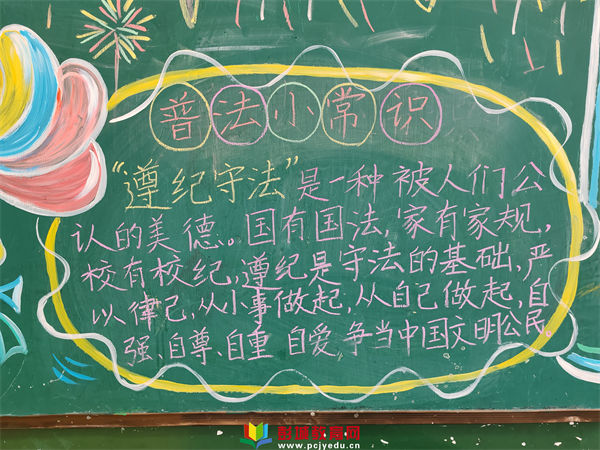 普法小常识
“遵纪守法”是一种被人们公
认的美德。国有国法,家有家规,
校有校纪,遵纪是守法的基础,严
以律己,从小事做起,从自己做起,自
强、自尊、自重 自爱,争当中国文明公民。
彭城教育网
www.pcjyedu.cn